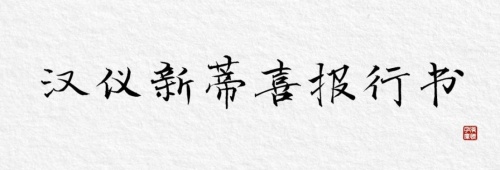 汉仪新蒂喜报行书